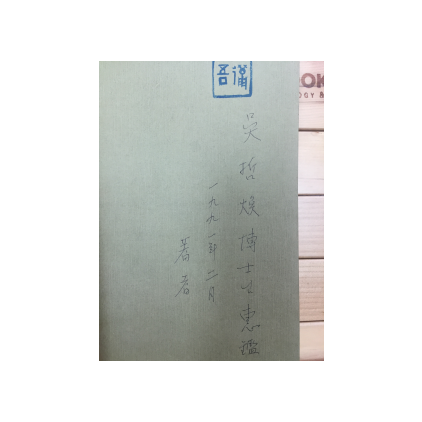 吳哲煥博士之惠鑑
一九九一年二月
著者
OOK
OGY &